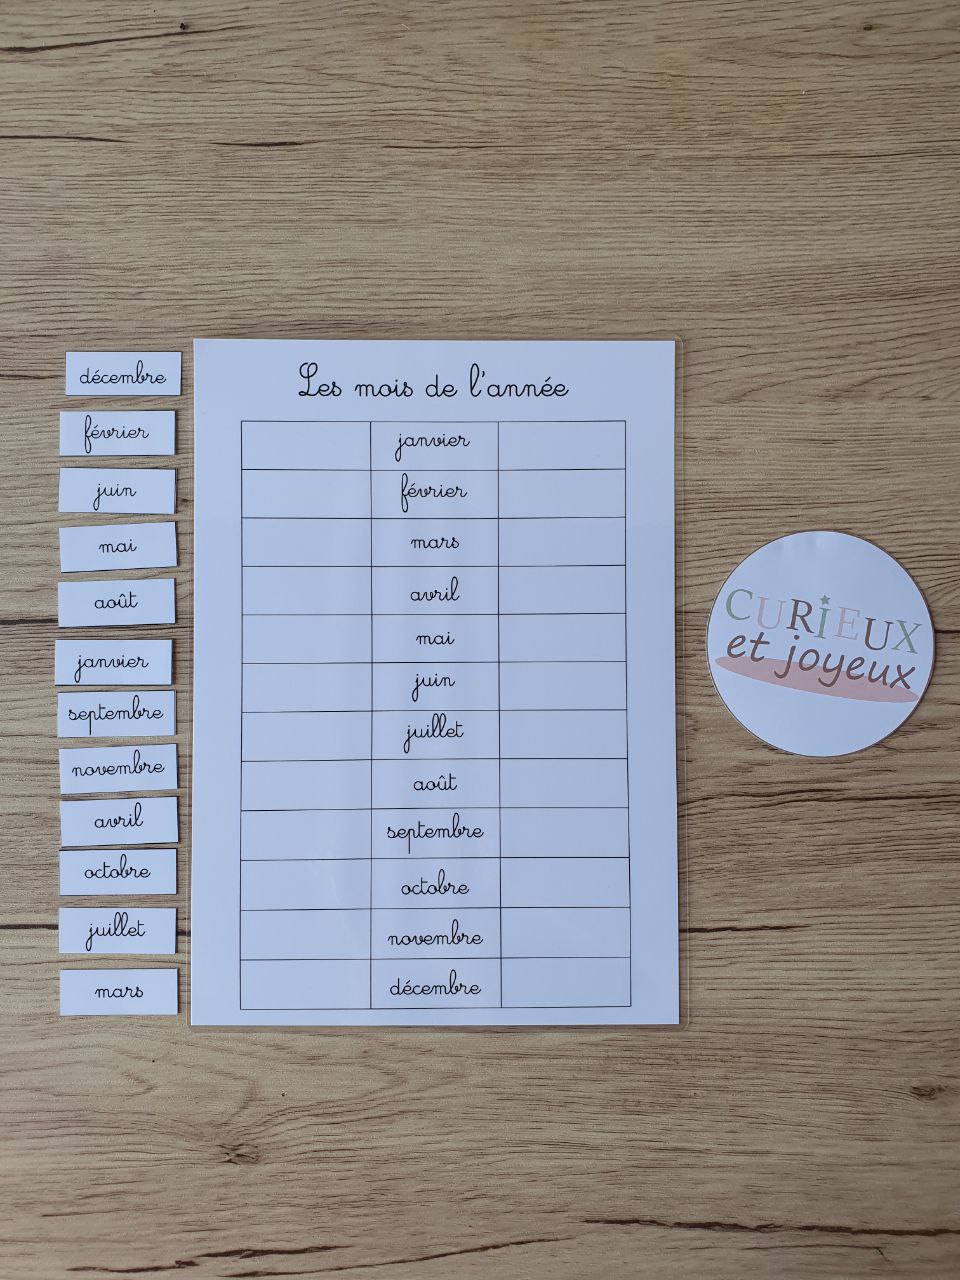 décembre
février
juin
mai
août
janvier
septembre
novembre
avril
octobre
juillet
mars
Les mois de l'année
janvier
février
mars
avril
mai
juin
juillet
août
septembre
octobre
novembre
décembre
CURIEUX
et joyeux